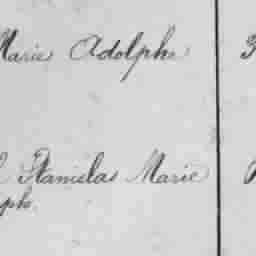 Marie Adolphe
Stanislas Marie
ph.